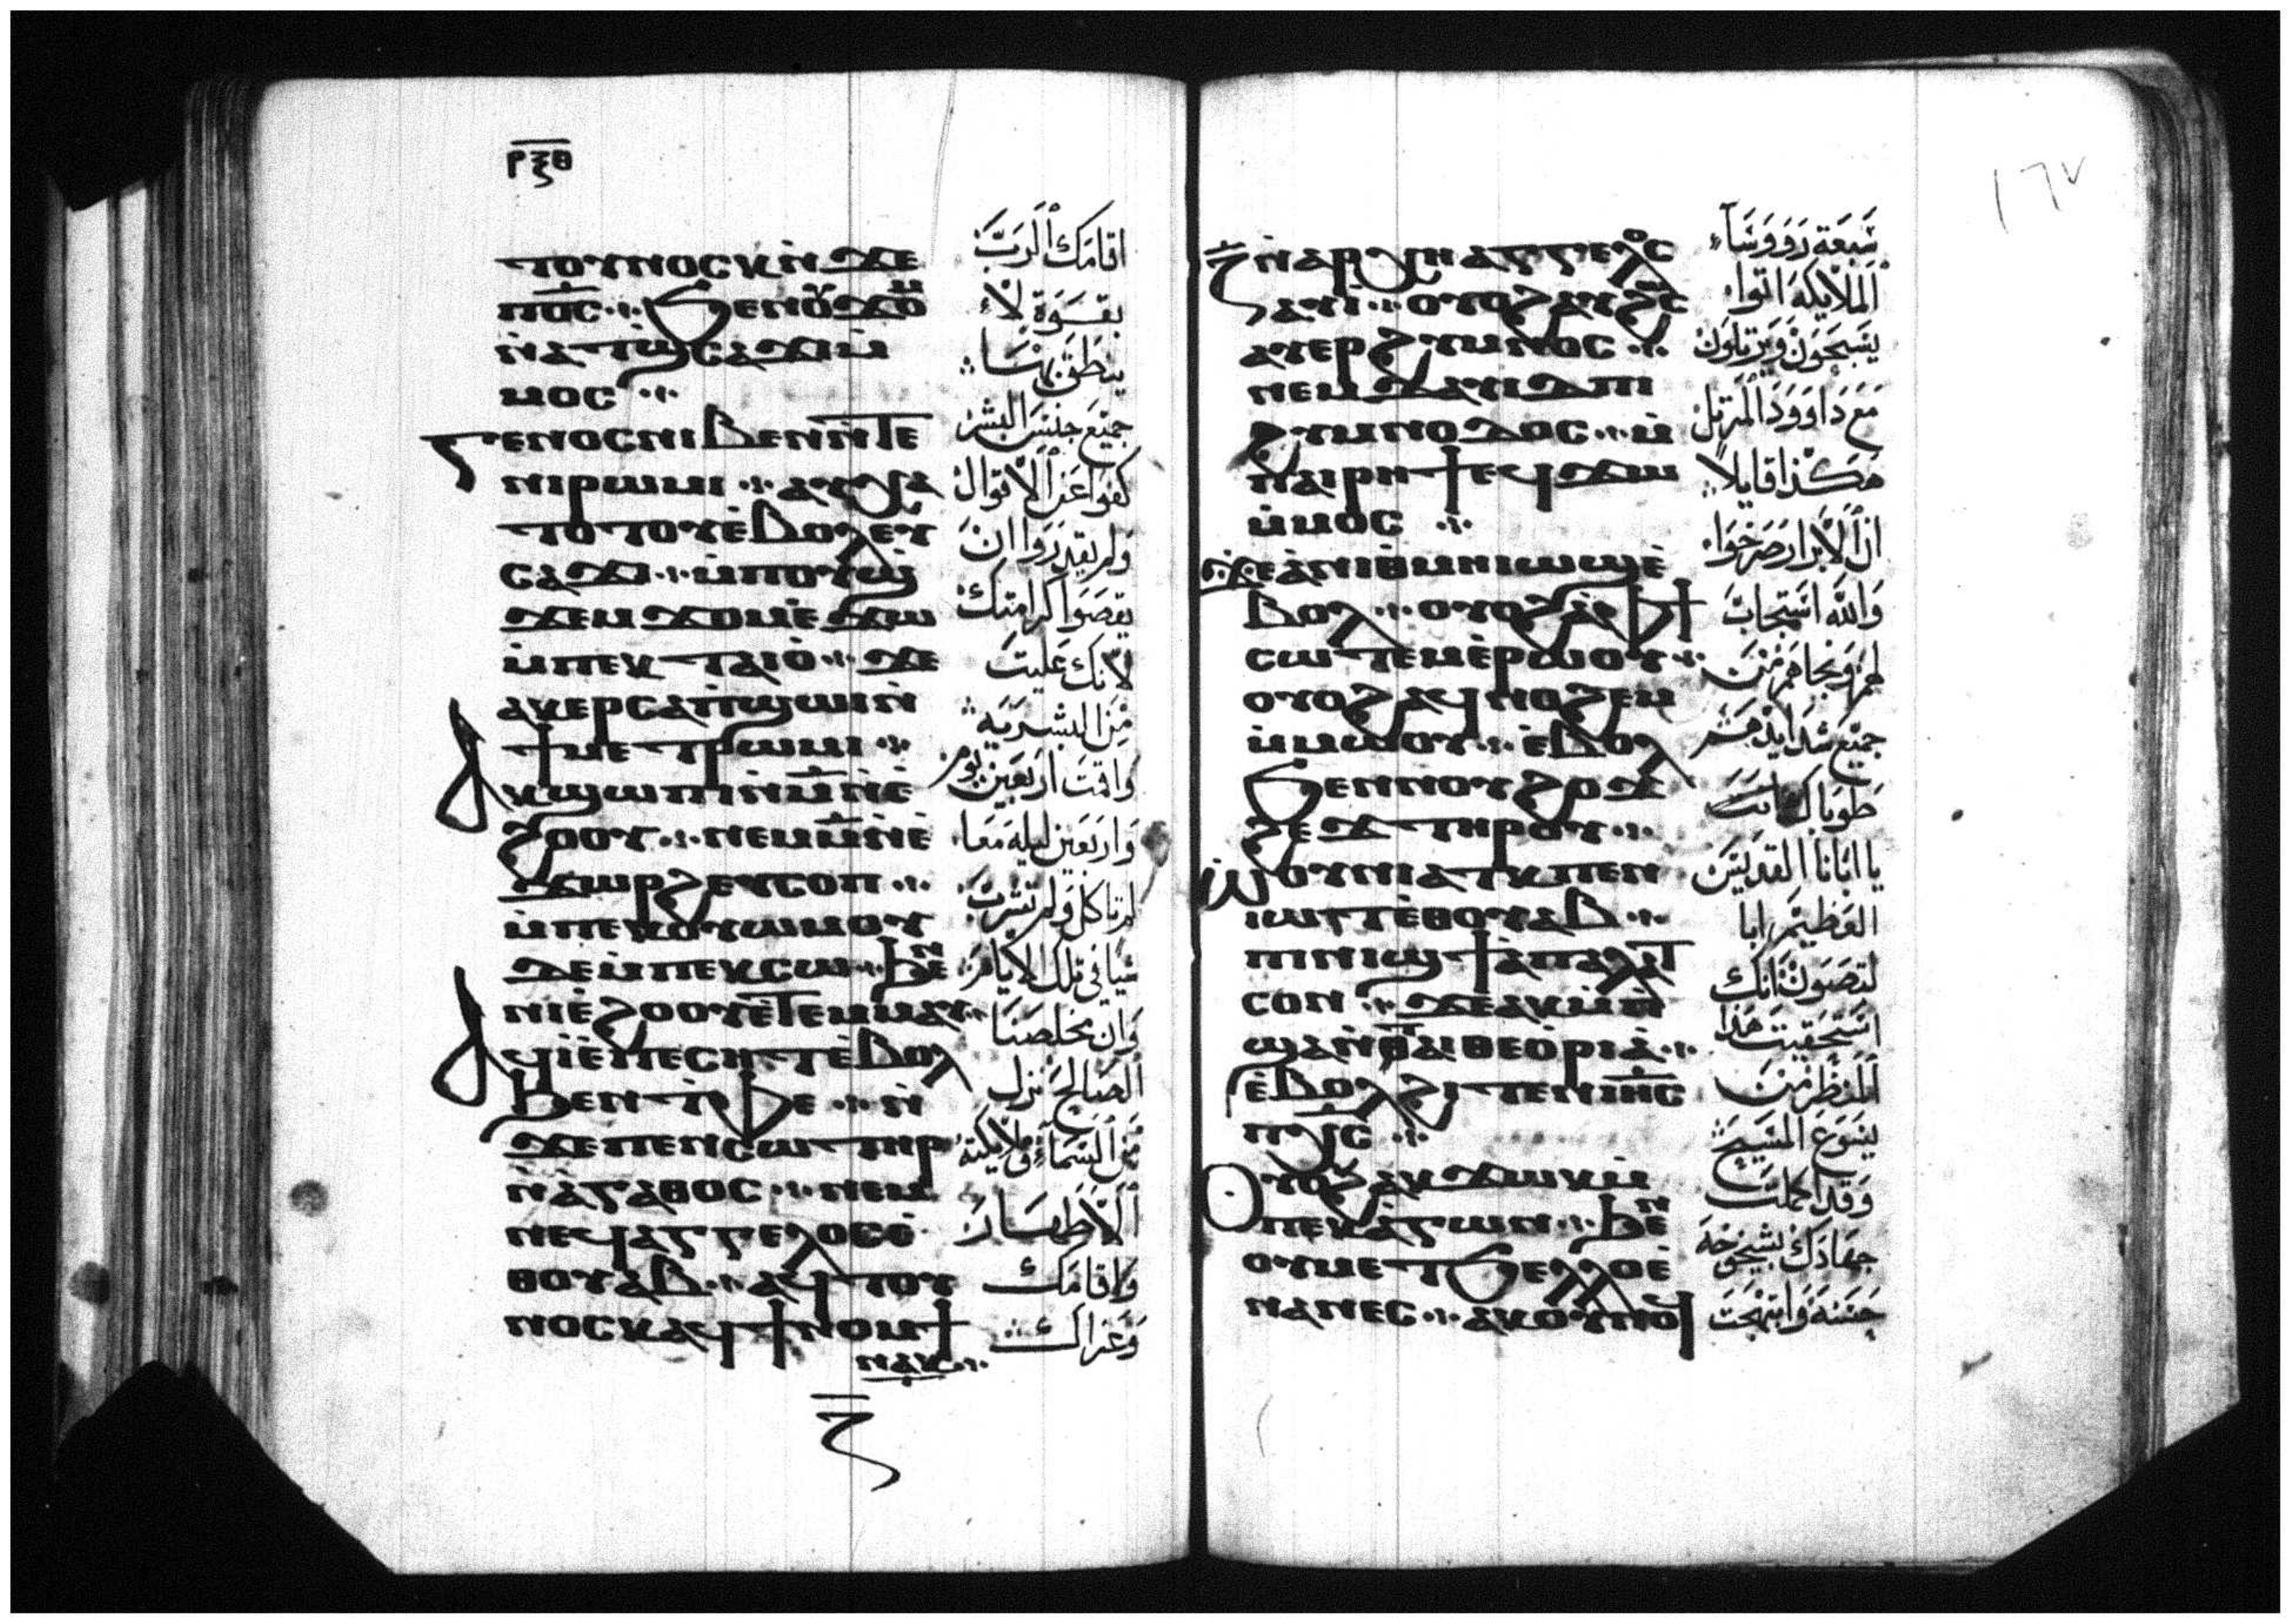 ⲣⲝⲑ
ⲧⲟⲩⲛⲟⲥⲕⲛ̀ϫⲉ
ⲡⲟ̅ⲥ̅ ⲃⲉⲛⲟⲩϫⲟⲙ
ⲛ̀ⲁⲧϣ̀ⲥⲁϫⲓⲙ̀
ⲙⲟⲥ
ⲅⲉⲛⲟⲥⲛⲓⲃⲉⲛⲛ̀ⲧⲉ
ⲛⲓⲣⲱⲙⲓ ⲁⲩⲭⲁ
ⲧⲟⲧⲟⲩⲉ̀ⲃⲟⲗⲉⲩ
ⲥⲁϫⲓ ⲙ̀ⲡⲟⲩϣ̀
ϫⲉⲙϫⲟⲙⲉ̀ϫⲱ
ⲙ̀ⲡⲉⲕⲧⲁⲓⲟ̀ ϫⲉ
ⲁⲕⲉⲣⲥⲁⲡ̀ϣⲱⲓⲛ̀
ϯⲙⲉⲧⲣⲱⲙⲓ
ⲁⲕϣⲱⲡⲓⲛ̀ⲙ̅ⲛ̀ⲉ̀
ϩⲟⲟⲩ ⲛⲉⲙⲙ̅ⲛ̀ⲉ̀
ϫⲱⲣϩⲉⲩⲥⲟⲡ
ⲙ̀ⲡⲉⲕⲟⲩⲱⲙⲟⲩ
ⲇⲉⲙ̀ⲡⲉⲕⲥⲱ ϧⲉⲛ
ⲛⲓⲉ̀ϩⲟⲟⲩⲉ̀ⲧⲉⲙⲙⲁⲩ
ⲁϥⲓ̀ⲉ̀ⲡⲉⲥⲏⲧⲉ̀ⲃⲟⲗ
ϧⲉⲛⲧ̀ⲫⲉ ⲛ̀
ϫⲉⲡⲉⲛⲥⲱⲧⲏⲣ
ⲛ̀ⲁ̀ⲅⲁⲑⲟⲥ ⲛⲉⲙ
ⲛⲉϥⲁⲅⲅⲉⲗⲟⲥⲉ̀
ⲑⲟⲩⲁⲃ ⲁϥⲧⲟⲩ
ⲛⲟⲥⲕⲁϥϯⲛⲟⲙϯ
ⲛⲁⲕ
ⲍ̅
اقامك الرب
بقوة لا
ينطق بها
جميع جنس البشر
كفوا عن الاقوال
ولم يقدروا ان
يقصوا كرامتك
لانك عليت
من البشرية
واقمت اربعين يوم
واربعين ليلة معا
لم تاكل ولم تشرب
شيا في تلك الايام
وان مخلصنا
الصالح نزل
من السماء وملايكته
الاطهار
واقامك
وعزاك
١٦٧
ⲍ̅ⲛ̀ⲁⲣⲭⲏⲁⲅⲅⲉⲗⲟⲥ
ⲁⲩⲓ̀ ⲟⲩⲟϩⲁⲩϩⲱⲥ
ⲁⲩⲉⲣϩⲩⲙⲛⲟⲥ
ⲛⲉⲙⲇⲁⲩⲓⲇⲡⲓ
ϩⲩⲙⲛⲟⲇⲟⲥ ⲙ̀
ⲡⲁⲓⲣⲏϯⲉϥϫⲱ
ⲙ̀ⲙⲟⲥ
ϫⲉⲁ̀ⲛⲓⲑⲙⲏⲓⲱϣⲉ̀
ⲃⲟⲗ ⲟⲩⲟϩⲁ̀ⲫϯ
ⲥⲱⲧⲉⲙⲉ̀ⲣⲱⲟⲩ
ⲟⲩⲟϩⲁϥⲛⲟϩⲉⲙ
ⲙ̀ⲙⲱⲟⲩ ⲉ̀ⲃⲟⲗ
ϧⲉⲛⲛⲟⲩϩⲟϫ
ϩⲉϫⲧⲏⲣⲟⲩ
ⲱ̀ⲟⲩⲛⲓⲁⲧⲕⲡⲉⲛ
ⲓⲱⲧⲧⲉ̀ⲑⲟⲩⲁⲃ
ⲡⲓⲛⲓϣϯⲁ̀ⲡⲁⲗⲁⲧ
ⲥⲟⲛ ϫⲉⲁⲕⲙ̀ⲡ̀
ϣⲁⲛ̀ⲧⲁⲓⲑⲉⲟ̀ⲣⲓⲁ̀
ⲉ̀ⲃⲟⲗϩⲓⲧⲉⲛⲓⲏ̅ⲥ̅
ⲡⲭ̅ⲥ̅
ⲟⲩⲟϩⲁⲕϫⲱⲕⲙ̀
ⲡⲉⲕⲁ̀ⲅⲱⲛ ϧⲉⲛ
ⲟⲩⲙⲉⲧϧⲉⲗⲗⲟⲉ̀
ⲛⲁⲛⲉⲥ ⲁⲕⲟⲩⲛⲟϥ
سبعة رووساء
الملايكة اتوا
يسبحون ويرتلون
مع داوود المرتل
هكذا قايلا
ان الابرار صرخوا
والله استجاب
لهم ونجاهم من
جميع شدايدهم
طوباك انت
يا ابانا القديس
العظيم ابا
لتصون انك
استحقيت هذا
المنظر من
يسوع المسيح
وقد اكملت
جهادك بشيخوخة
حسنة وابتهجت